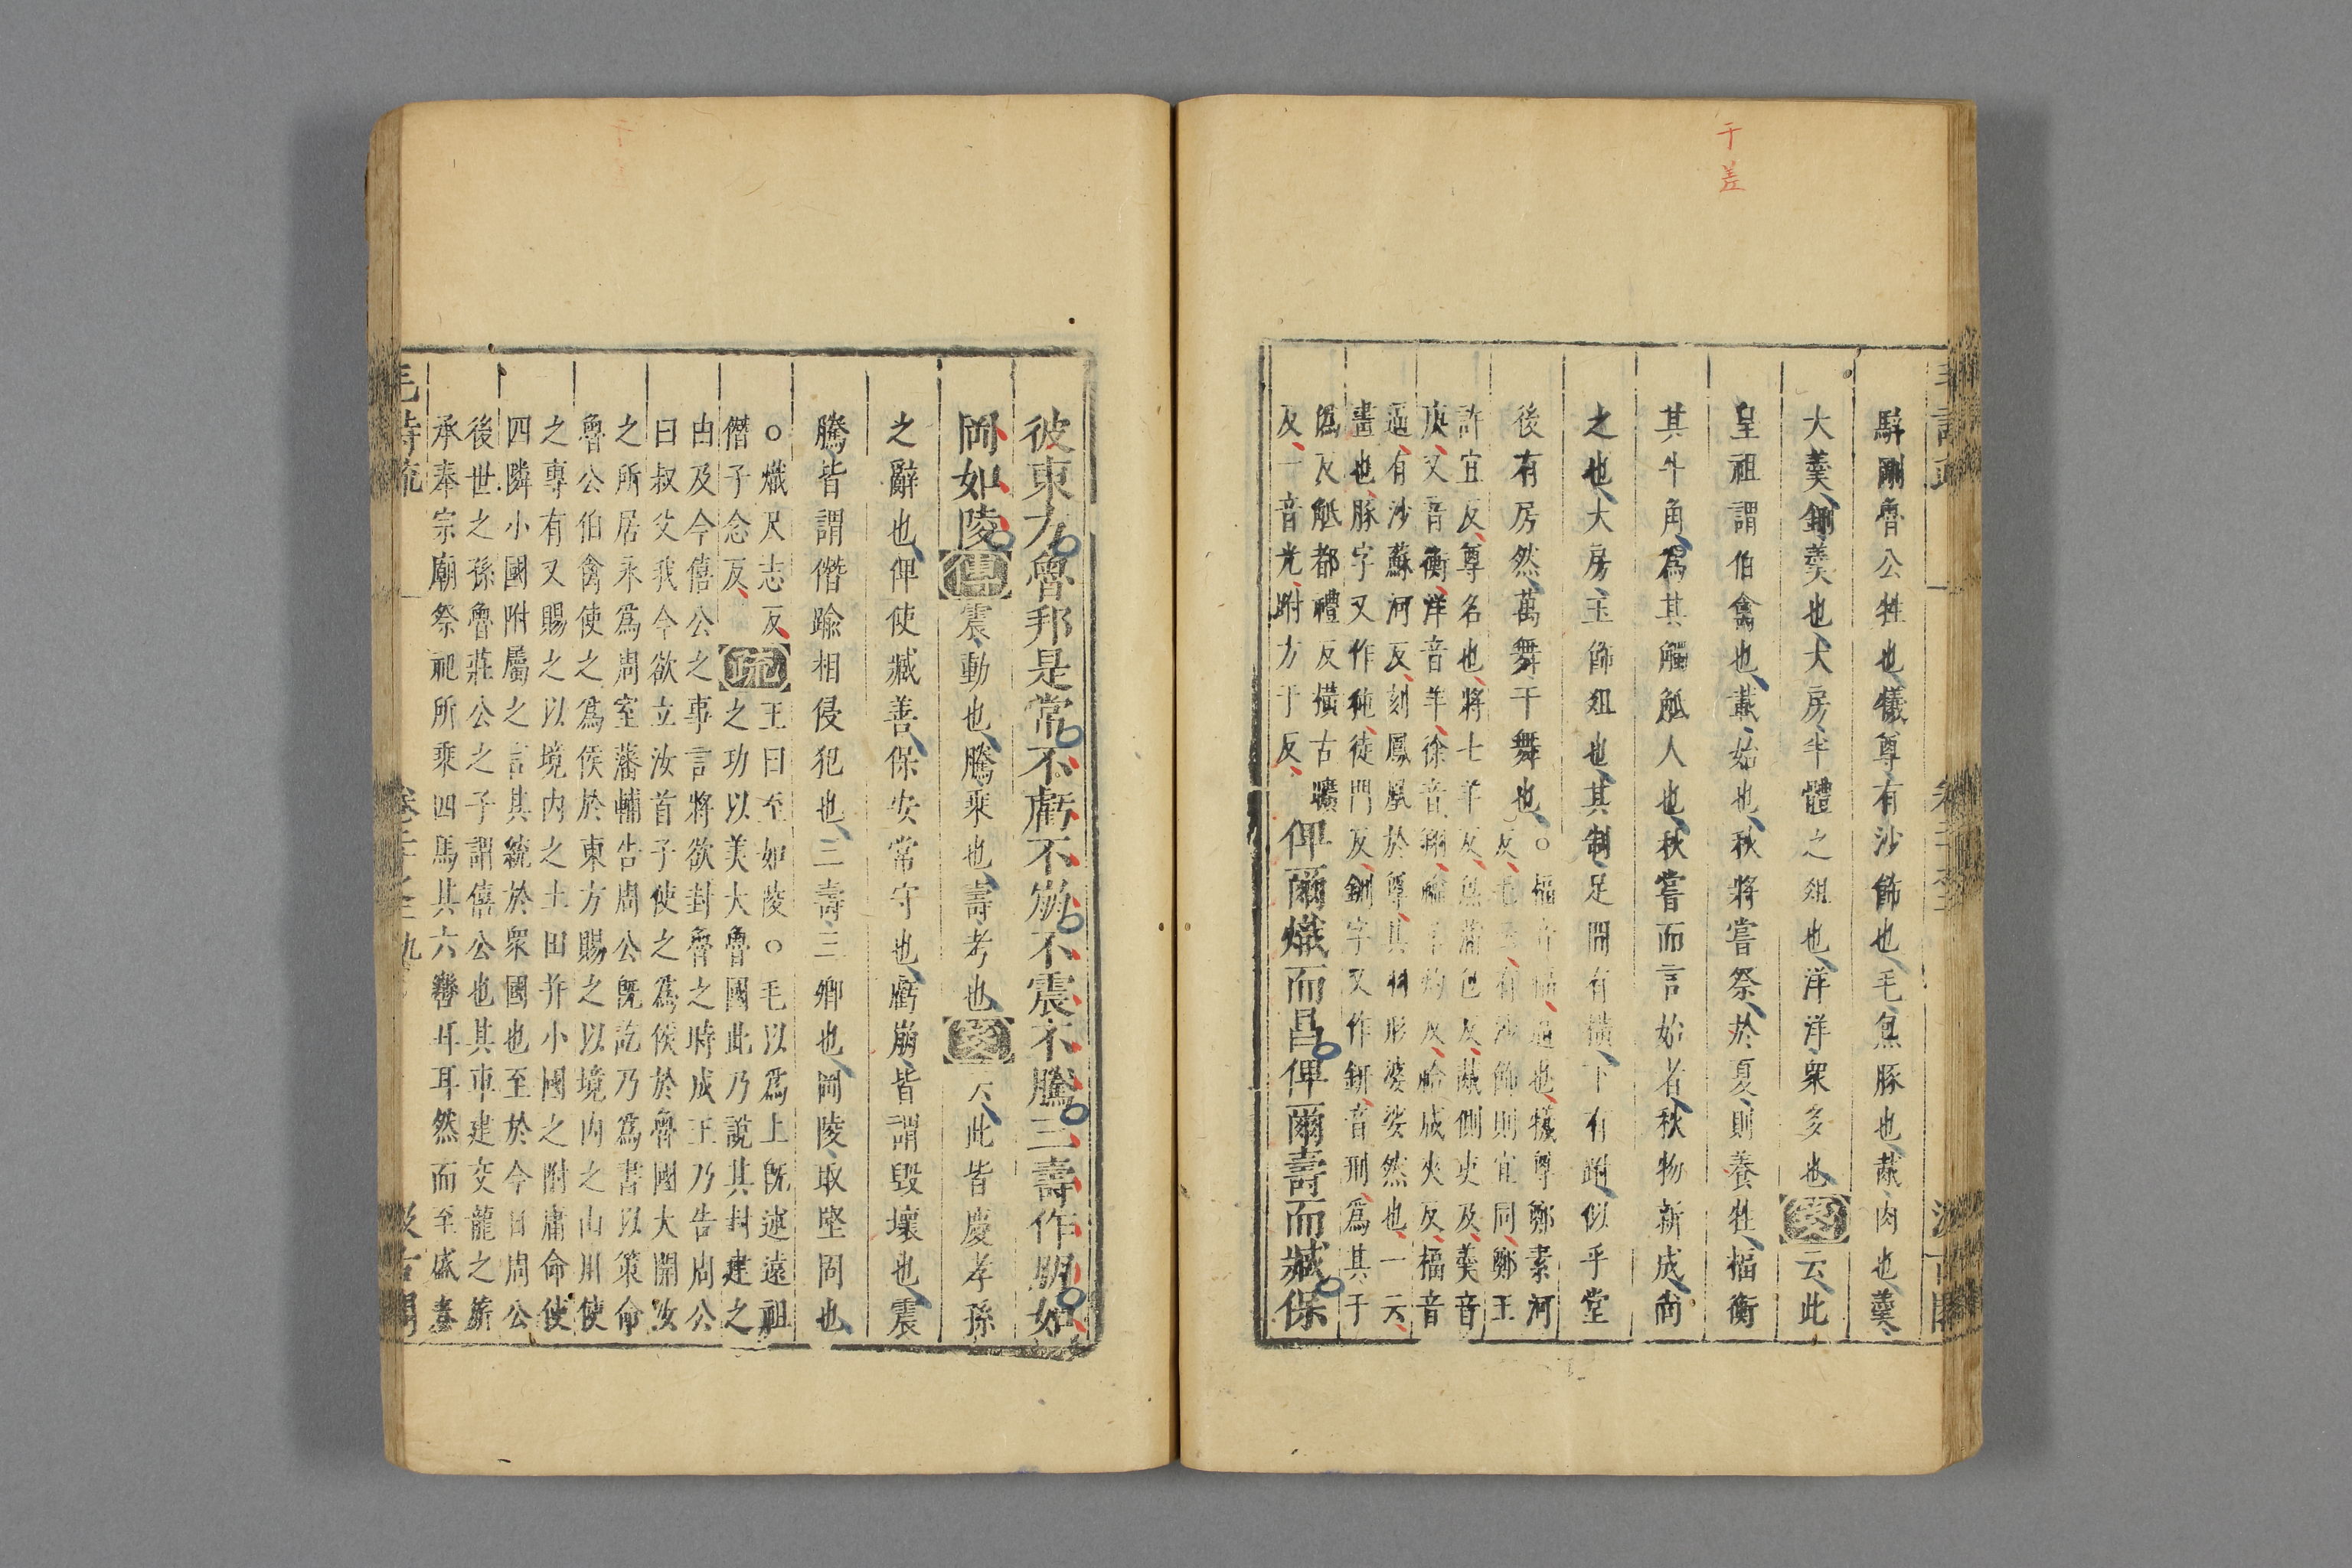 干差
騂剛魯公牲也犧尊有沙飾也毛炰豚也胾肉也羹
大羹鉶羹也大房半體之俎也洋洋衆多也箋云此
皇祖謂伯禽也載始也秋將嘗祭於夏則養牲楅衡
其牛角爲其觸觝人也秋嘗而言始者秋物新成尚
之也大房玉飾俎也其制足間有橫下有跗似乎堂
後有房然萬舞干舞也
○楅音福逼也犧尊鄭素河
反毛云有沙飾則宜同鄭王
許宜反尊名也將七羊反炰蒲包反胾側吏反羹音
庚又音衡洋音羊徐音翔
反郃成夾反楅音
逼有沙蘇河反刻鳳凰於尊其羽形婆娑然也一云
畫也豚字又作㹠徒門反鉶字又作鈃音刑爲其于
僞反觝都禮反橫古曠
反一音光跗方于反
俾爾熾而昌俾爾壽而臧保
彼東方魯邦是常不虧不崩不震不騰三壽作朋如
岡如陵傳震動也騰乘也壽考也箋云此皆慶孝孫
之辭也俾使臧善保安常守也虧崩皆謂毀壞也震
騰皆謂僭踰相侵犯也三壽三卿也岡陵取堅固也
○熾尺志反
僭子念反
疏
王曰至如陵○毛以爲上既述遠祖
之功以美大魯國此乃說其封建之
由及今僖公之事言將欲封魯之時成王乃告周公
曰叔父我今欲立汝首子使之爲侯於魯國大開汝
之所居永爲周室藩輔告周公既訖乃爲書以策命
魯公伯禽使之爲侯於東方賜之以境內之山川使
之專有又賜之以境內之土田并小國之附庸命使
四隣小國附屬之言其統於衆國也至於今日周公
後世之孫魯莊公之子謂僖公也其車建交龍之旂
承奉宗廟祭祀所乘四馬其六轡耳耳然而至盛春
毛詩疏 九